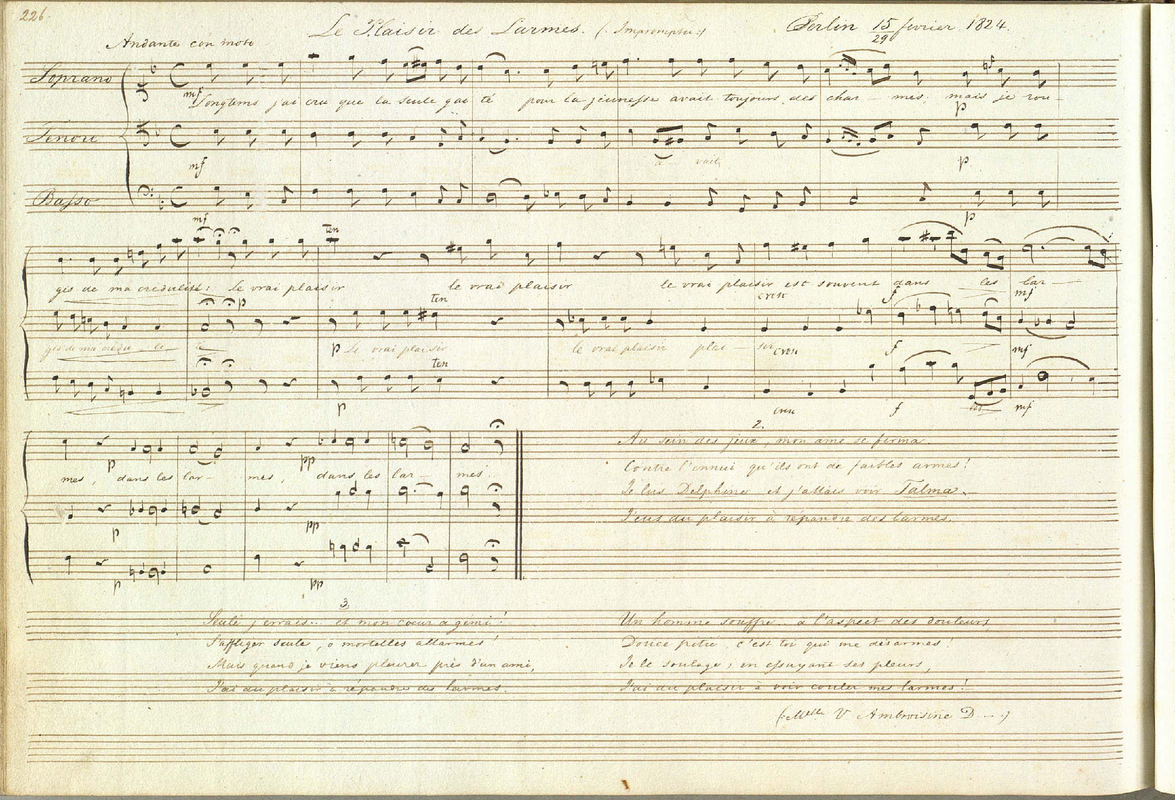 226.
Le Plaisir des Larmes. (Impromptu) Berlin 15/29 février 1824.
Andante con moto
Soprano
mf
Longtems j'ai cru que la seule gaité pour la jeunesse avait toujours des char — mes mais je rou —
p
Tenore
mf
avait
p
Basso
mf
p
ten
gis de ma crédulité: le vrai plaisir le vrai plaisir le vrai plaisir est souvent dans les lar —
p ten cres f mf
gis de ma crédulité p le vrai plaisir le vrai plaisir plai — sir cres f mf
ten
p cres f mf
p pp
mes, dans les lar — mes, dans les lar — mes.
p pp
p pp
2.
Au sein des jeux, mon ame se forma
Contre l'ennui qu'ils ont de faibles armes!
Je lus Delphine et j'allais voir Talma.
J'eus du plaisir à répandre des larmes.
3.
Seule j'errais... et mon cœur a gémi!
S'affliger seule, ô mortelles allarmes!
Mais quand je viens pleurer près d'un ami,
J'ai du plaisir à répandre des larmes.
Un homme souffre.. à l'aspect des douleurs
Douce pitié, c'est toi qui me désarmes
Je le soulage; en essuyant ses pleurs,
J'ai du plaisir à voir couler mes larmes!
(Melle V Ambroisine D....)